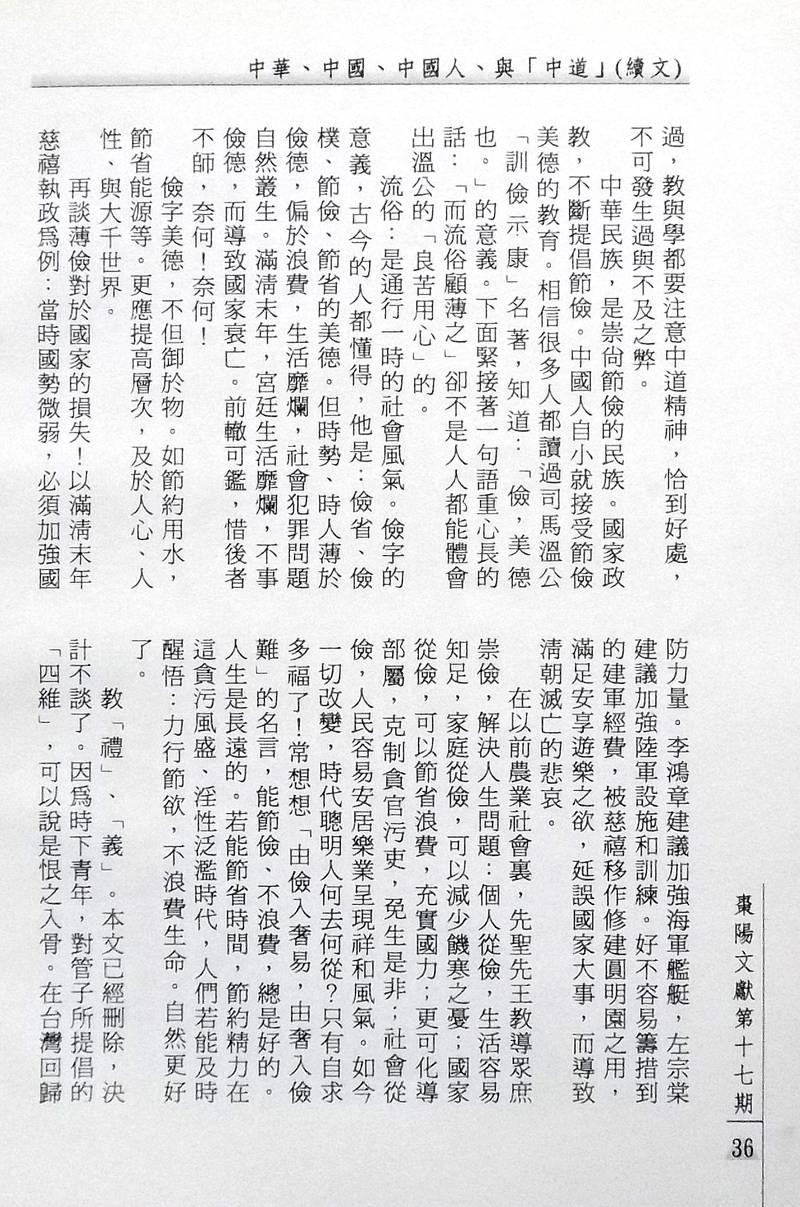 中華、中國、中國人、與「中道」(續文)
過，教與學都要注意中道精神，恰到好處，
不可發生過與不及之弊。
中華民族，是崇尙節儉的民族。國家政
教，不斷提倡節儉。中國人自小就接受節儉
美德的教育。相信很多人都讀過司馬溫公
「訓儉示康」名著，知道：「儉，美德
也。」的意義。下面緊接著一句語重心長的
話：「而流俗顧薄之」卻不是人人都能體會
出溫公的「良苦用心」的。
流俗：是通行一時的社會風氣。儉字的
意義，古今的人都懂得，他是：儉省、儉
樸、節儉、節省的美德。但時勢、時人薄於
儉德，偏於浪費，生活靡爛，社會犯罪問題
自然叢生。滿淸末年，宮廷生活靡爛，不事
儉德，而導致國家衰亡。前轍可鑑，惜後者
不師，奈何！奈何！
儉字美德，不但御於物。如節約用水，
節省能源等。更應提高層次，及於人心、人
性、與大千世界。
再談薄儉對於國家的損失！以滿淸末年
慈禧執政爲例：當時國勢微弱，必須加強國
防力量。李鴻章建議加強海軍艦艇，左宗棠
建議加強陸軍設施和訓練。好不容易籌措到
的建軍經費，被慈禧移作修建圓明園之用，
滿足安享遊樂之欲，延誤國家大事，而導致
淸朝滅亡的悲哀。
在以前農業社會裏，先聖先王教導眾庶
崇儉，解決人生問題：個人從儉，生活容易
知足，家庭從儉，可以減少饑寒之憂；國家
從儉，可以節省浪費，充實國力；更可化導
部屬，克制貪官污吏，免生是非；社會從
儉，人民容易安居樂業呈現祥和風氣。如今
一切改變，時代聰明人何去何從？只有自求
多福了！常想想「由儉入奢易，由奢入儉
難」的名言，能節儉、不浪費，總是好的。
人生是長遠的。若能節省時間，節約精力在
這貪污風盛、淫性泛濫時代，人們若能及時
醒悟：力行節欲，不浪費生命。自然更好
了。
教「禮」、「義」。本文已經刪除，決
計不談了。因爲時下青年，對管子所提倡的
「四維」，可以說是恨之入骨。在台灣回歸
棗陽文獻第十七期
36